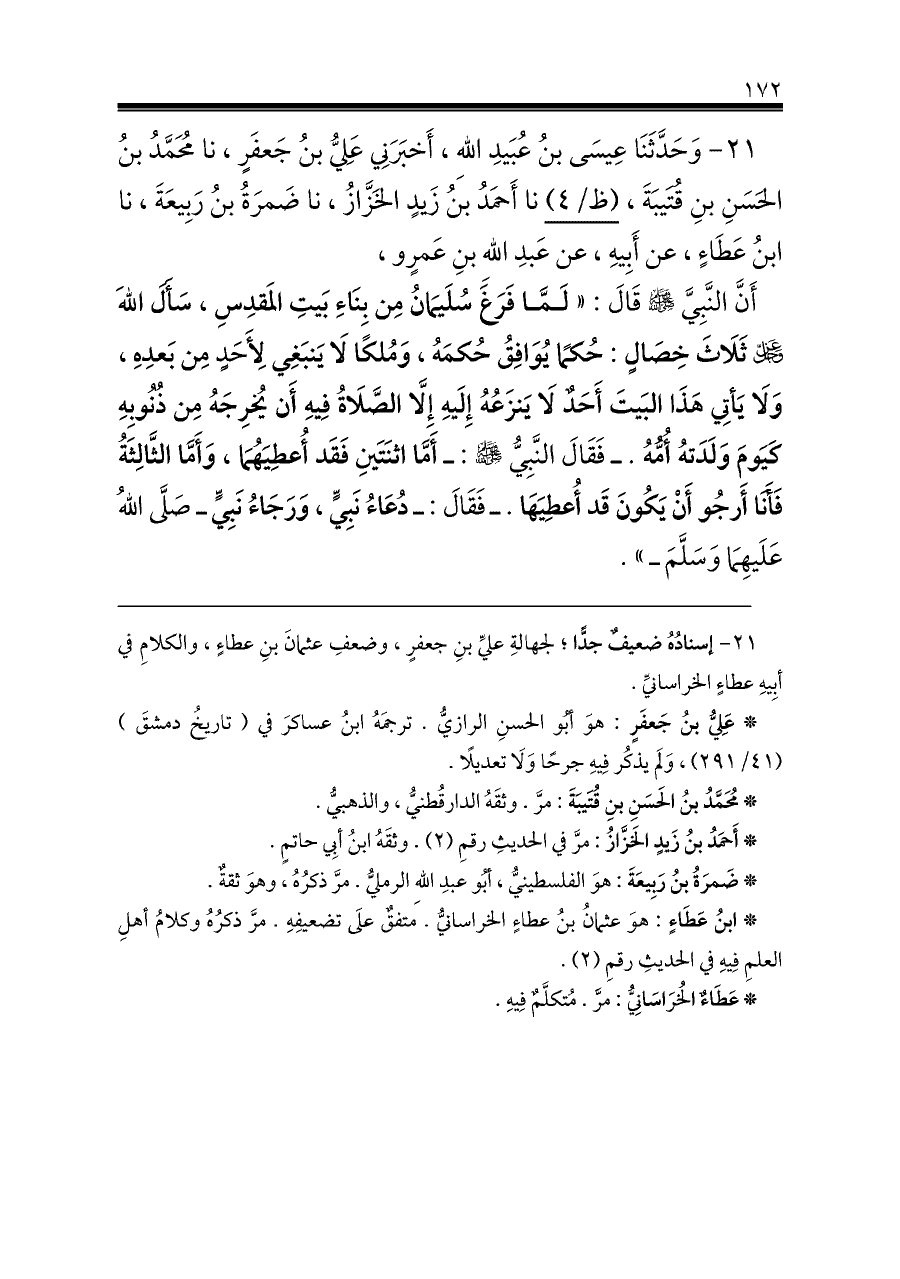 ١٧٢
٢١- وَحَدَّثَنَا عِيسَى بنُ عُبَيدِ اللهِ ، أَخبَرَنِي عَلِيُّ بنُ جَعفَرٍ ، نا مُحَمَّدُ بنُ
الحَسَنِ بنِ قُتَيبَةَ ، (ظ/ ٤) نا أَحمَدُ بنُ زَيدٍ الخَزَّازُ ، نا ضَمرَةُ بنُ رَبِيعَةَ ، نا
ابنُ عَطَاءٍ ، عن أَبِيهِ ، عن عَبدِ الله بنِ عَمرٍو ،
أَنَّ النَّبِيَّ ﷺ قَالَ : « لَـمَّـا فَرَغَ سُلَيمَانُ مِن بِنَاءِ بَيتِ المَقدِسِ ، سَأَلَ اللهَ
ﷻ ثَلَاثَ خِصَالٍ : حُكمًا يُوَافِقُ حُكمَهُ ، وَمُلكًا لَا يَنبَغِي لِأَحَدٍ مِن بَعدِهِ ،
وَلَا يَأتِي هَذَا البَيتَ أَحَدٌ لَا يَنزَعُهُ إِلَيهِ إِلَّا الصَّلَاةُ فِيهِ أَن يُخرِجَهُ مِن ذُنُوبِهِ
كَيَومَ وَلَدَتهُ أُمُّهُ . ـ فَقَالَ النَّبِيُّ ﷺ : ـ أَمَّا اثنَتَينِ فَقَد أُعطِيَهُمَا ، وَأَمَّا الثَّالِثَةُ
فَأَنَا أَرجُو أَنْ يَكُونَ قَد أُعطِيَهَا . ـ فَقَالَ : ـ دُعَاءُ نَبِيٍّ ، وَرَجَاءُ نَبِيٍّ ـ صَلَّى اللهُ
عَلَيهِمَا وَسَلَّمَ ـ » .
٢١- إسنادُهُ ضعيفٌ جدًّا ؛ لجهالةِ عليِّ بنِ جعفرٍ ، وضعفِ عثمانَ بنِ عطاءٍ ، والكلامِ في
أبِيهِ عطاءٍ الخراسانيِّ .
* عَلِيُّ بنُ جَعفَرٍ : هوَ أبُو الحسنِ الرازيُّ . ترجمَهُ ابنُ عساكرَ في ( تاريخُ دمشقَ )
(٤١/ ٢٩١) ، وَلَم يذكُر فِيهِ جرحًا وَلَا تعديلًا .
* مُحَمَّدُ بنُ الحَسَنِ بنِ قُتَيبَةَ : مرَّ . وثقَهُ الدارقُطنيُّ ، والذهبيُّ .
* أَحمَدُ بنُ زَيدٍ الخَزَّازُ : مرَّ في الحديثِ رقمِ (٢) . وثقَهُ ابنُ أبِي حاتمٍ .
* ضَمرَةُ بنُ رَبِيعَةَ : هوَ الفلسطينيُّ ، أبُو عبدِ اللهِ الرمليُّ . مرَّ ذكرُهُ ، وهوَ ثقةٌ .
* ابنُ عَطَاءٍ : هوَ عثمانُ بنُ عطاءٍ الخراسانيُّ . متفقٌ علَى تضعيفِهِ . مرَّ ذكرُهُ وكلامُ أهلِ
العلمِ فِيهِ في الحديثِ رقمِ (٢) .
* عَطَاءٌ الخُرَاسَانِيُّ : مرَّ . مُتكلَّمٌ فِيهِ .